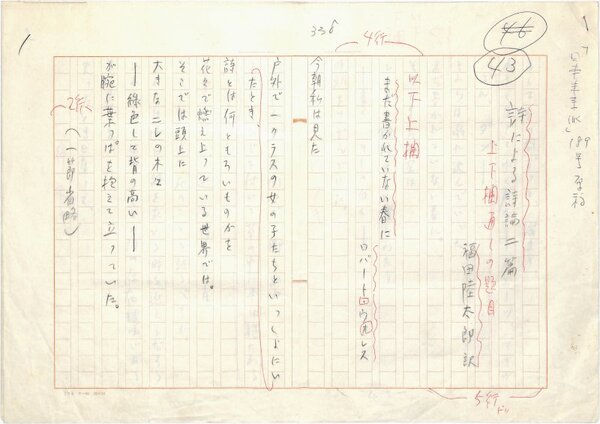 338
46
43
4行
189号原稿
詩による詩論二篇
上下欄通しの題目
福田陸太郎訳
5行
以下上欄
まだ書かれていない春に
ロバート・ウォレス
今朝私は見た
戸外で一クラスの女の子たちといっしょにい
たとき、
詩とは何ともろいものかを
花々で燃え上っている世界では。
そこでは頭上に
大きなニレの木々
――緑色して背の高い――
が腕に葉っぱを抱えて立っていた。
(一節省略)